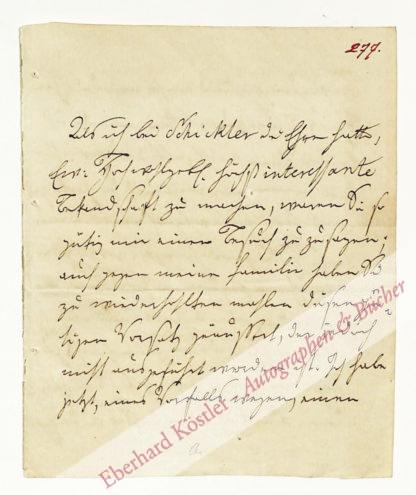 277.
Als ich bei Schickler die Ehre hatte,
Ew: Hochwohlgeb. höchst interessante
Bekandschaft zu machen, waren Sie so
gütig mir einen Besuch zuzusagen;
auch gegen meine Familie haben Sie
zu wiederhohlten mahlen diesen gü-
tigen Vorsatz geäussert, der
nicht ausgeführt worden ist. Ich habe
jetzt, eines Vorfalls wegen, einen
Eberhard Köstler Autographen & Bücher